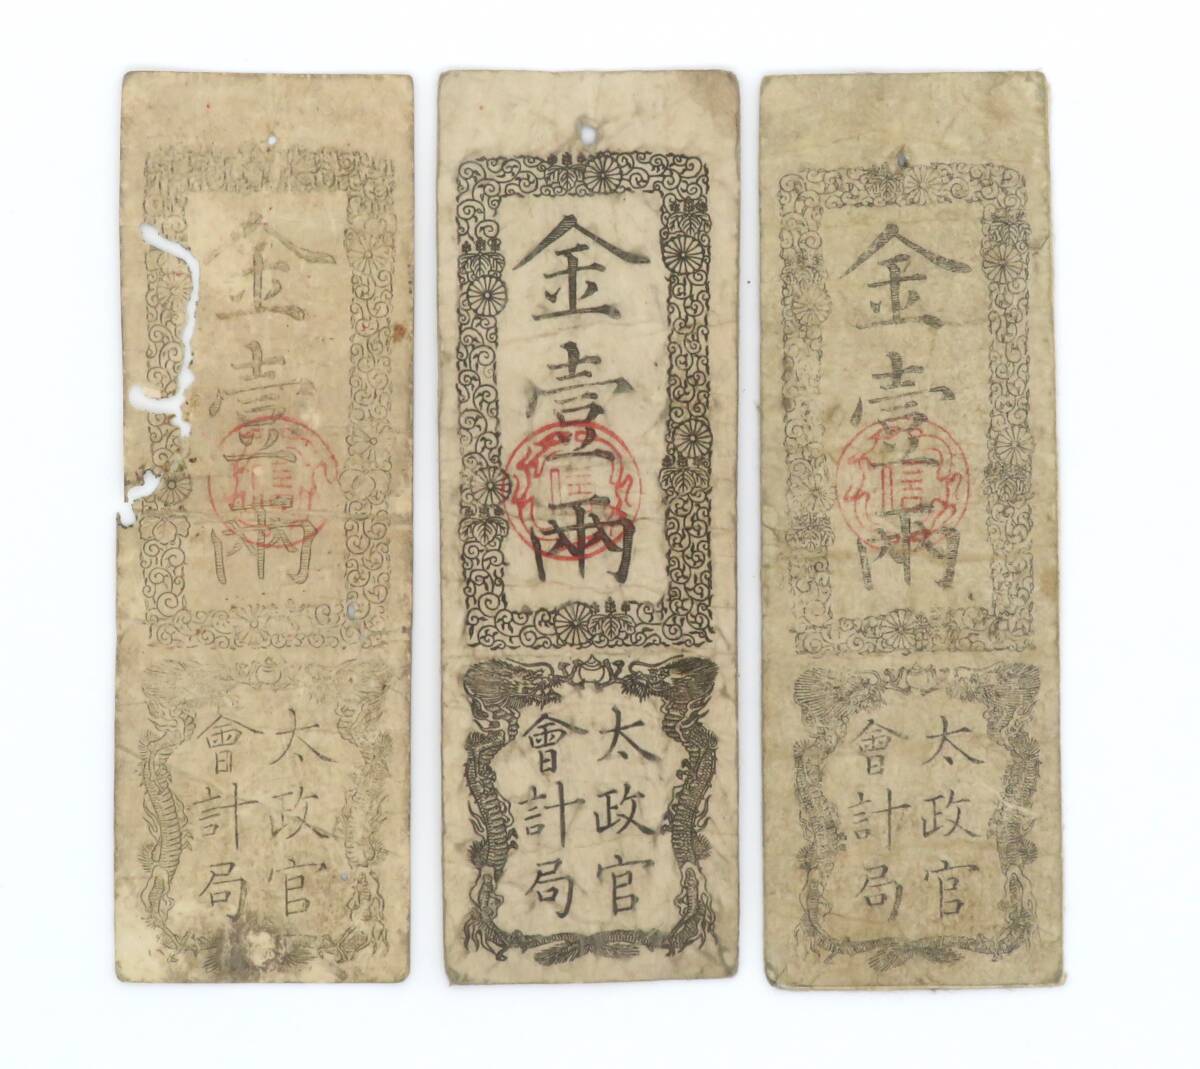 金壹兩
信
太政官
會計局
金壹兩
信
太政官
會計局
金壹兩
信
太政官
會計局